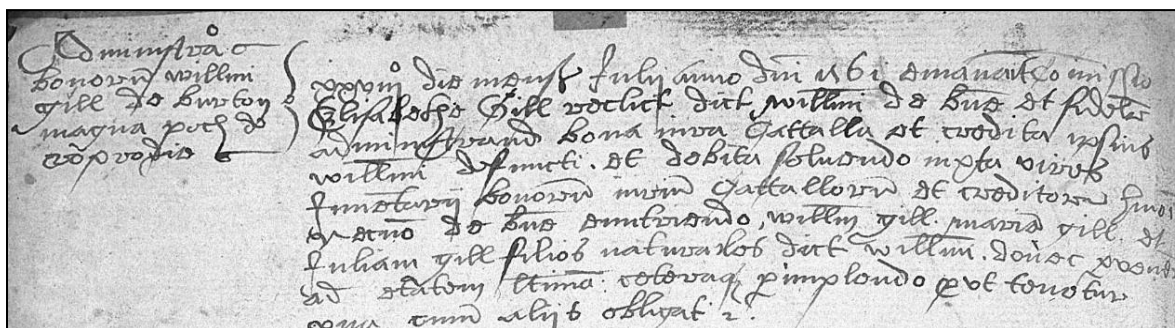 Administrac̃o
bonorũ willmi
gill de burton
magna poch de
xxviijo die mens Julij anno dni 1561 emanavit Comissio
Elisabethe Gill relict dict willmi de bñe et fidelr
administrand bona iura Cattalla et credita ipsius
willmi defuncti . et debita solvendo iuxta vires
Inventarij bonorũ iuriũ Cattallorũ et creditorũ
de bñe enutriendo, willm gill . mariã gill . et
Juliam gill filios naturales dict willmi . donec
ad etatem ltimã : ceteraq pimplendo put tenetur
cum alijs obligat